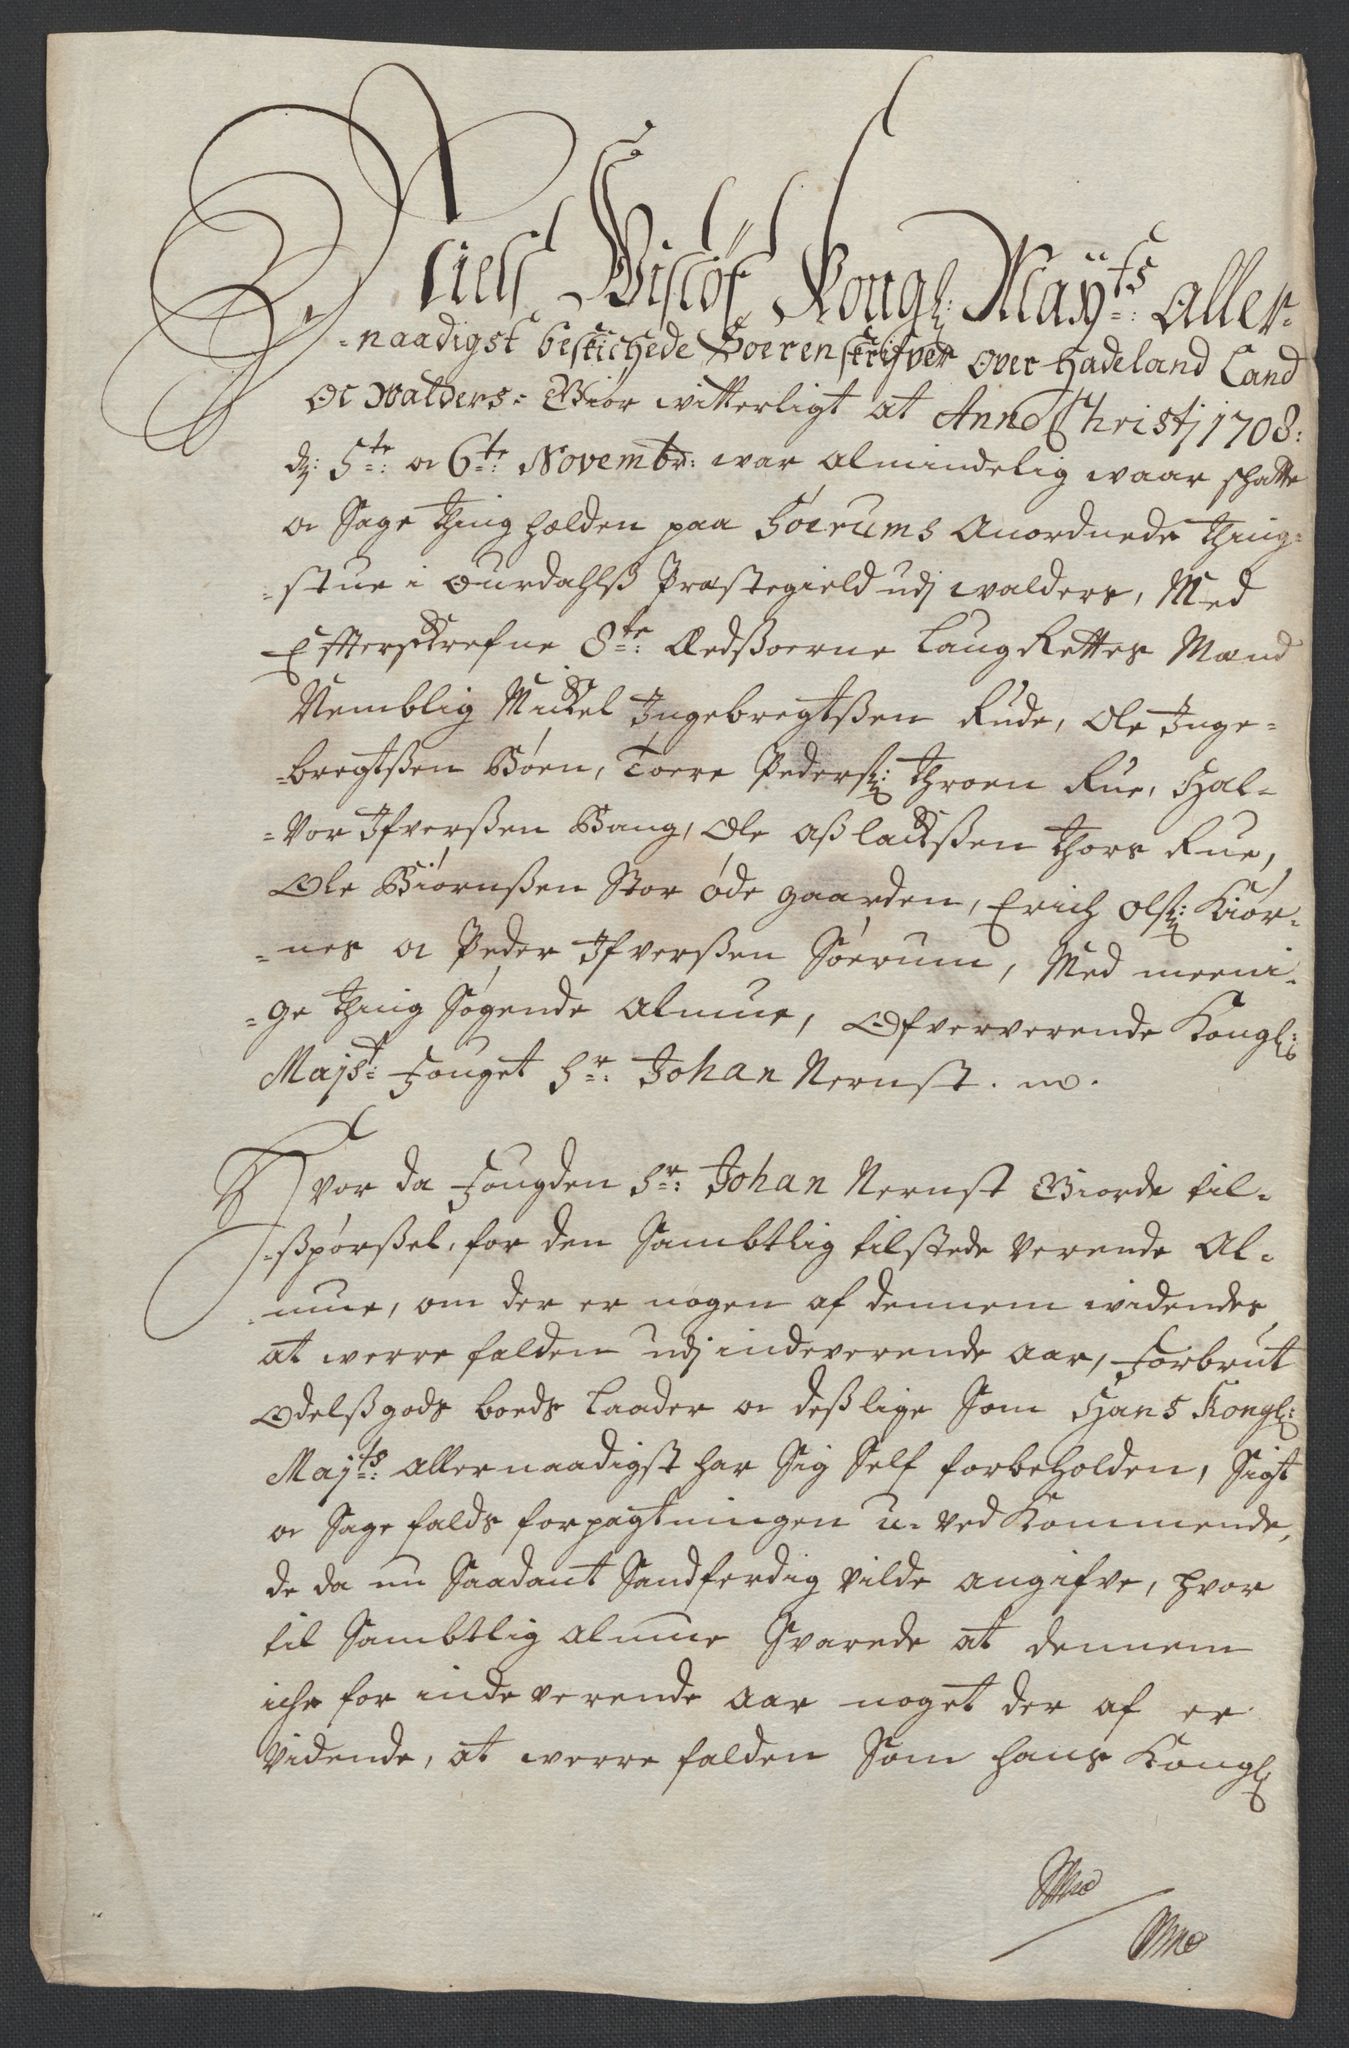 Niels Wislöf Kongl: May:ts Aller-
-naadigst bestichede Soerenskrifver over Hadeland Land
Oc Walders- Giør witterligt at Anno Christj 1708:
d: 5te: oc 6te: Novembr: war almindelig waar schatte
oc Sage Thing holden paa Söerums Anordnede Thing-
-stue i Ourdahlss Præstegield udj walders, Med
Efterschrefne 8te: Ædssoerne Laug Rettes Mænd
Nemblig Mickel Ingebregtssen Rude, Ole Inge-
-bregtssen Böen, Toere Pederss: Throen Rue, Hal-
-vor Ifverssen Bang, Ole Asslackssen Thors Rue,
Ole Biörnssen Stor öde gaarden, Erich Olss: Kiör-
-nes oc Peder Ifverssen Söerum, Med meeni-
-ge Thing Søgende Almue, Ofververende Kongl:
Majst: Fouget Hr: Johan Nernst. m.
Hvor da Fougden Hr: Johan Nernst Giorde til-
-sspørssel, for den Sambtlig tilstede verende Al-
-mue, om der er nogen af dennem widendes
at werre falden udj indeverende Aar, Forbrut
Odelssgods boeds Laader oc desslige Som Hans Kongl:
Majts: Allernaadigst har Sig Self forbeholden, Sigt
oc Sage falds forpagtningen u-ved Kommende,
de da nu Saadant Sandferdig vilde angifve, hvor
til Sambtlig Almue Svarede at dennem
iche for indeverende Aar noget der af er
vidende, at werre falden Som hans Kongl